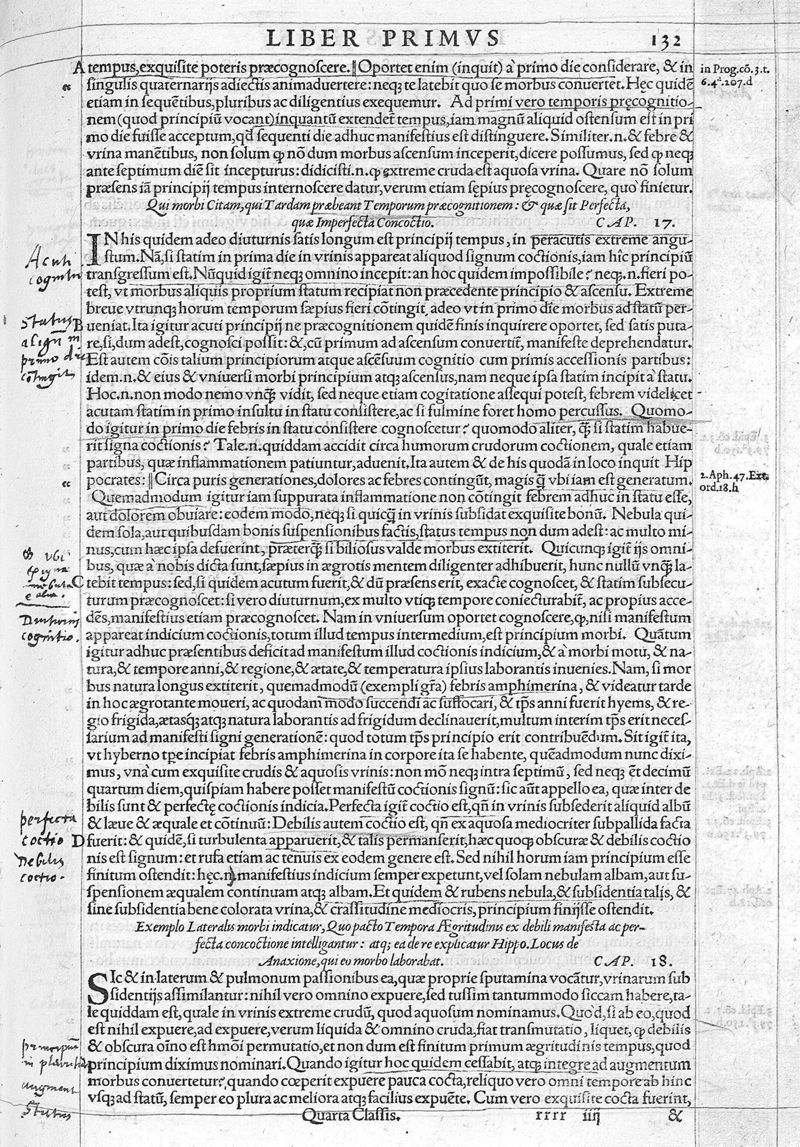 LIBER PRIMVS 132
A tempus,exquisite poteris præcognoscere.‖Oportet enim (inquit) à primo die considerare, & in
singulis quaternarijs adiectis animaduertere: neq; te latebit quo se morbus conuertet. Hęc quidē
etiam in sequētibus,pluribus ac diligentius exequemur. Ad primi vero temporis pręcognitio-
nem(quod principiū vocant)inquantū extendet tempus,iam magnū aliquid ostensum est in pri
mo die fuisse acceptum,qđ sequenti die adhuc manifestius est distinguere. Similiter.n.& febre &
vrina manētibus, non solum ꝙ nō dum morbus ascensum inceperit,dicere possumus, sed ꝙ neq;
ante septimum diē sit incepturus: didicisti.n.ꝙ extreme cruda est aquosa vrina. Quare nō solum
præsens iā principij tempus internoscere datur,verum etiam sępius pręcognoscere, quo finietur.
Qui morbi Citam,qui Tardam præbeant Temporum præcognitionem: & quæ sit Perfecta,
quæ Imperfecta Concoctio. CAP. 17.
IN his quidem adeo diuturnis satis longum est principij tempus, in peracutis extreme angu-
stum. Nā,si statim in prima die in vrinis appareat aliquod signum coctionis,iam hic principiū
transgressum est. Nūquid igiť neq; omnino incepit: an hoc quidem impossibile? neq;.n.fieri po-
test, vt morbus aliquis proprium statum recipiat non præcedente principio & ascensu. Extreme
breue vtrunq; horum temporum sæpius fieri cōtingit, adeo vt in primo die morbus ad statū per-
B ueniat. Ita igitur acuti principij ne præcognitionem quidē finis inquirere oportet, sed satis puta-
re,si,dum adest,cognosci possit: &,cū primum ad ascensum conuertiť, manifeste deprehendatur.
Est autem cōis talium principiorum atque ascēsuum cognitio cum primis accessionis partibus:
idem.n.& eius & vniuersi morbi principium atq; ascensus,nam neque ipsa statim incipit à statu.
Hoc.n.non modo nemo vnq̄; vidit, sed neque etiam cogitatione assequi potest, febrem videlicet
acutam statim in primo insultu in statu consistere,ac si fulmine foret homo percussus. Quomo-
do igitur in primo die febris in statu consistere cognoscetur? quomodo aliter, q̄; si statim habue-
rit signa coctionis? Tale.n.quiddam accidit circa humorum crudorum coctionem, quale etiam
partibus, quæ inflammationem patiuntur,aduenit.Ita autem & de his quodā in loco inquit Hip
pocrates:‖Circa puris generationes,dolores ac febres contingūt, magis q̄; vbi iam est generatum.
Quemadmodum igitur iam suppurata inflammatione non cōtingit febrem adhuc in statu esse,
aut dolorem obuiare: eodem modo, neq; si quicq̄; in vrinis subsidat exquisite bonū. Nebula qui-
dem sola,aut quibusdam bonis suspensionibus factis,status tempus non dum adest: ac multo mi-
nus,cum hæc ipsa defuerint, præterq̄; si biliosus valde morbus extiterit. Quicunq; igiť ijs omni-
bus, quæ à nobis dicta sunt,sæpius in ægrotis mentem diligenter adhibuerit, hunc nullū vnq̄; la-
C tebit tempus: sed,si quidem acutum fuerit,& dū præsens erit, exacte cognoscet, & statim subsecu-
turum præcognoscet: si vero diuturnum,ex multo vtiq; tempore coniecturabiť, ac propius acce-
dēs,manifestius etiam præcognoscet. Nam in vniuersum oportet cognoscere,ꝙ,nisi manifestum
appareat indicium coctionis,totum illud tempus intermedium,est principium morbi. Quātum
igitur adhuc præsentibus deficit ad manifestum illud coctionis indicium,& à morbi motu, & na-
tura,& tempore anni,& regione,& ætate,& temperatura ipsius laborantis inuenies. Nam, si mor
bus natura longus extiterit, quemadmodū (exempli gr̄a) febris amphimerina, & videatur tarde
in hoc ægrotante moueri, ac quodam modo succendi ac suffocari, & tp̄s anni fuerit hyems, & re-
gio frigida,ætasq; atq; natura laborantis ad frigidum declinauerit,multum interim tp̄s erit neces-
sarium ad manifesti signi generationē: quod totum tp̄s principio erit contribuēdum. Sit igiť ita,
vt hyberno tp̄e incipiat febris amphimerina in corpore ita se habente, quēadmodum nunc dixi-
mus, vnà cum exquisite crudis & aquosis vrinis: non mō neq; intra septimū, sed neq; ēt decimū
quartum diem,quispiam habere posset manifestū coctionis signū: sic aūt appello ea, quæ inter de
bilis sunt & perfectę coctionis indicia.Perfecta igiť coctio est,qn̄ in vrinis subsederit aliquid albū
& læue & æquale et cōtinuū: Debilis autem coctio est, qn̄ ex aquosa mediocriter subpallida facta
D fuerit: & quidē,si turbulenta apparuerit,& talis permanserit,hæc quoq; obscuræ & debilis coctio
nis est signum: et rufa etiam ac tenuis ex eodem genere est. Sed nihil horum iam principium esse
finitum ostendit: hęc.n. manifestius indicium semper expetunt,vel solam nebulam albam,aut su-
spensionem æqualem continuam atq; albam. Et quidem & rubens nebula,& subsidentia talis, &
sine subsidentia bene colorata vrina,& crassitudine mediocris, principium finijsse ostendit.
Exemplo Lateralis morbi indicatur, Quo pacto Tempora Ægritudinis ex debili manifesta ac per-
fecta concoctione intelligantur: atq; ea de re explicatur Hippo. Locus de
Anaxione,qui eo morbo laborabat. CAP. 18.
SIc & in laterum & pulmonum passionibus ea,quæ proprie sputamina vocātur,vrinarum sub
sidentijs assimilantur: nihil vero omnino expuere,sed tussim tantummodo siccam habere,ta-
le quiddam est,quale in vrinis extreme crudū, quod aquosum nominamus. Quòd,si ab eo,quod
est nihil expuere,ad expuere,verum liquida & omnino cruda,fiat transmutatio, liquet, ꝙ debilis
& obscura oīno est hmōi permutatio,et non dum est finitum primum ægritudinis tempus,quod
principium diximus nominari. Quando igitur hoc quidem cessabit, atq; integre ad augmentum
morbus conuertetur, quando cœperit expuere pauca cocta,reliquo vero omni tempore ab hinc
vsq; ad statū, semper eo plura ac meliora atq; facilius expuēte. Cum vero exquisite cocta fuerint,
Quarta Classis. rrrr iiij &
in Prog.cō.3.t.
6.4ᵃ.207.d
2.Aph.47.Ext
ord.18.h
Acuti
cognitio
Status
align in
primo die
cōtingit
Diuturni
cognitio.
perfecta
coctio
Debilis
coctio.
augment
Status